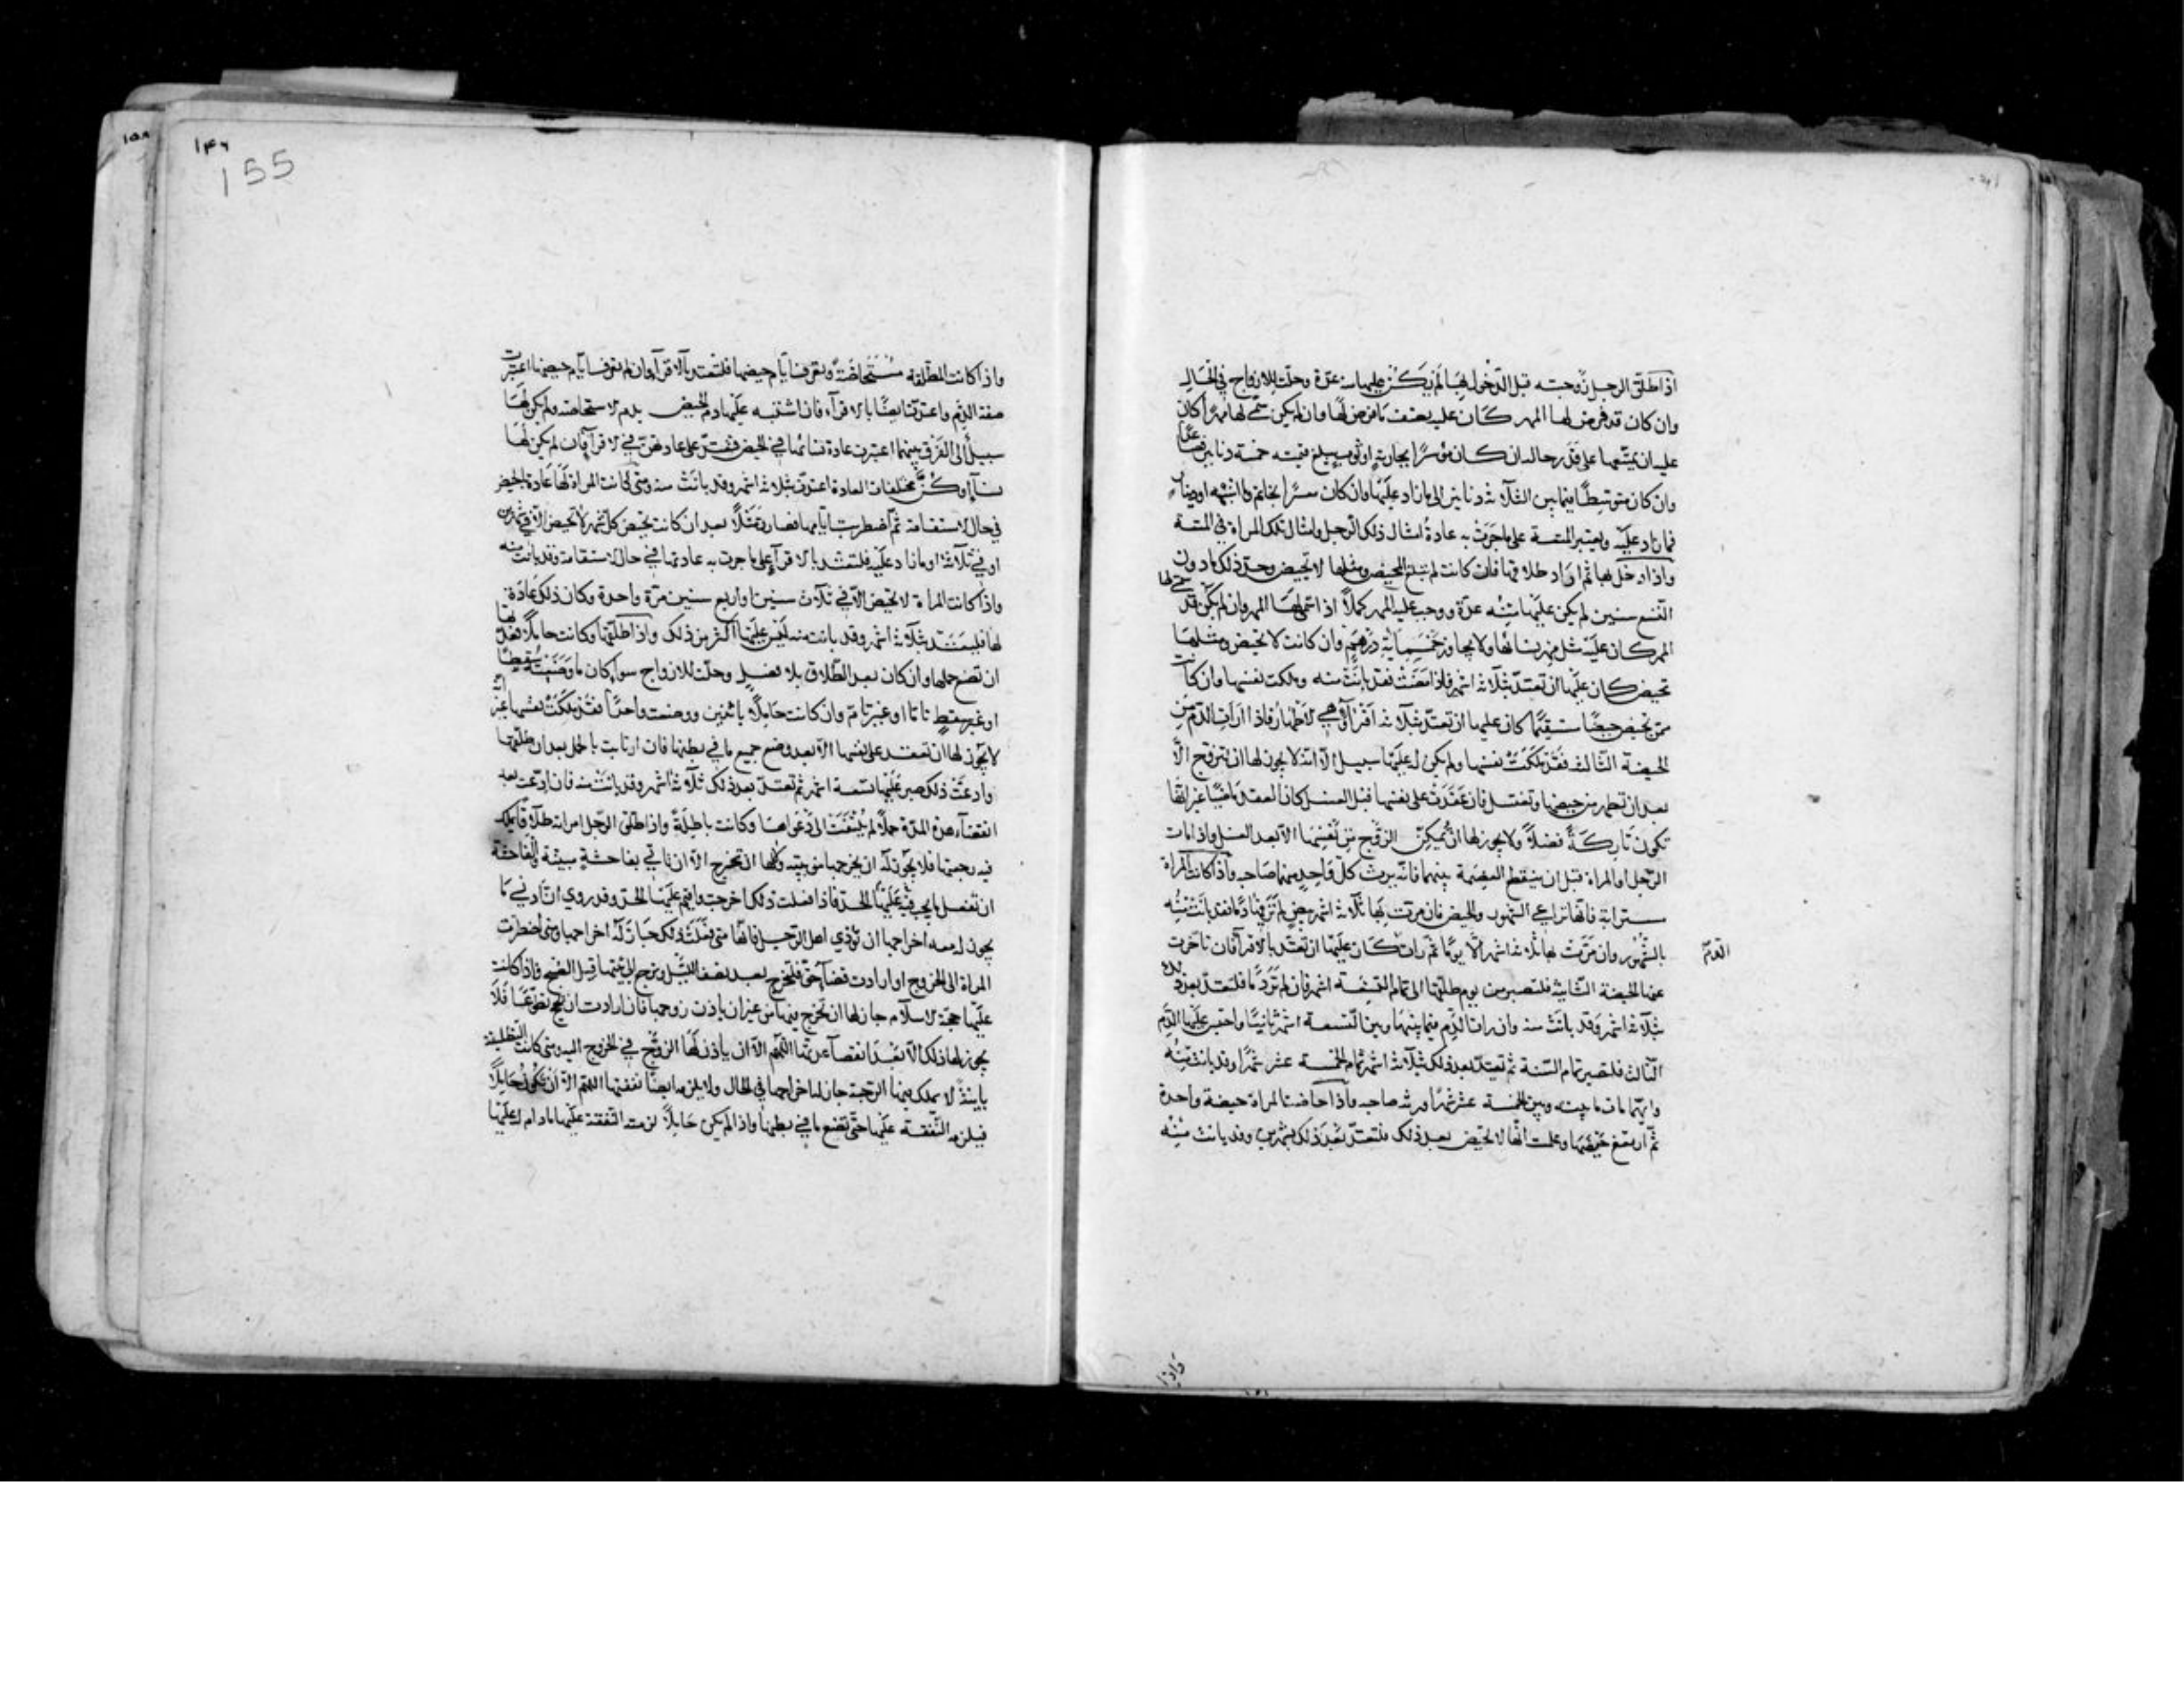 اذا طلق الرجل زوجته قبل الدخول بها لم يكن عليها منه عدة وحلت للازواج في الحال
وان كان قد فرض لها المهر كان عليه نصف ما فرض لها وان لم يكن سمى لها مهرا كان
عليه ان يمتعها على قدر حاله ان كان موسرا بجارية او ثوب يبلغ قيمته خمسة دنانير فصاعدا
وان كان متوسطا فيما بين الثلاثة دنانير الى ما زاد عليها وان كان معسرا بخاتم وما اشبهه او دينار
فما زاد عليه ويعتبر المتعة على ما جرت به عادة امثال ذلك الرجل وامثال تلك المراة في المتعة
واذا دخل بها ثم اراد طلاقها فان كانت لم تبلغ المحيض ومثلها لا تحيض وحد ذلك ما دون
التسع سنين لم يكن عليها منه عدة ووجب عليه المهر كملا اذا سمى لها المهر وان لم يكن قد سمى لها
المهر كان عليه مثل مهر نسائها ولا يجاوز خمسماية درهم وان كانت لا تحيض ومثلها
تحيض كان عليها ان تعتد بثلاثة اشهر فاذا مضت فقد بانت منه وملكت نفسها وان كانت
ممن تحيض حيضا مستقيما كان عليها ان تعتد بثلاثة اقراء وهي الاطهار فاذا ارات الدم من
الحيضة الثالثة فقد ملكت نفسها ولم يكن له عليها سبيل الا انه لا يجوز لها ان تتزوج الا
بعد ان تطهر من حيضها وتغتسل فان عقدت على نفسها قبل الغسل كان العقد ماضيا غير انها
تكون تاركة فضلا ولا يجوز لها ان تمكن الزوج من نفسها الا بعد الغسل واذا مات
الرجل او المراة قبل ان ينقطع العصمة بينهما فانه يرث كل واحد منهما صاحبه واذا كانت المراة
مسترابة فانها تراعي الشهور والحيض فان مرت بها ثلاثة اشهر بيض لم تر فيها دما فقد بانت منه
بالشهور وان مرت بها ثلاثة اشهر الا يوما ثم رات كان عليها ان تعتد بالاقراء فان تاخرت
الدم
عنها الحيضة الثانية فلتصبر من يوم طلقها الى تمام التسعة اشهر فان لم تر دما فلتعتد بعد ذلك
بثلاثة اشهر وقد بانت منه وان رات الدم فيما بينها وبين التسعة اشهر ثانيا واحتبس عليها الدم
الثالث فلتصبر تمام السنة ثم تعتد بعد ذلك بثلاثة اشهر تمام الخمسة عشر شهرا وقد بانت منه
وايهما مات ما بينه وبين الخمسة عشر شهرا ورثه صاحبه واذا حاضت المراة حيضة واحدة
ثم ارتفع حيضها وعلمت انها لا تحيض بعد ذلك فلتعتد بعد ذلك بشهرين وقد بانت منه
واذا
١٤٦
155
١٥٨
واذا كانت المطلقة مستحاضة وتعرف ايام حيضها فلتعتد بالاقراء وان لم تعرف ايام حيضها اعتبرت
صفة الدم واعتدت ايضا بالاقراء فان اشتبه عليها دم الحيض بدم الاستحاضة ولم يكن لها
سبيل الى الفرق بينهما اعتبرت عادة نسائها في الحيض فتعتد على عادتهن في الاقراء فان لم يكن لها
نساء او كن مختلفات العادة اعتدت بثلاثة اشهر وقد بانت منه ومتى كانت المراة لها عادة الحيض
في حال الاستقامة ثم اضطربت ايامها فصارت مثلا بعد ان كانت تحيض كل شهر لا تحيض الا في شهرين
او في ثلاثة او ما زاد عليه فلتعتد بالاقراء على ما جرت به عادتها في حال الاستقامة وقد بانت منه
واذا كانت المراة لا تحيض الا في ثلاث سنين او اربع سنين مرة واحدة وكان ذلك عادة
لها فلتعتد بثلاثة اشهر وقد بانت منه ليس عليها اكثر من ذلك واذا طلقها وكانت حاملا فعدتها
ان تضع حملها وان كان بعد الطلاق بلا فصل وحلت للازواج سواء كان ما وضعته سقطا
او غير سقط تاما او غير تام وان كانت حاملا باثنين ووضعت واحدا فقد ملكت نفسها غير انه
لا يجوز لها ان تعقد على نفسها الا بعد وضع جميع ما في بطنها فان ارتابت بالحمل بعد ان طلقها
وادعت ذلك صبر عليها تسعة اشهر ثم تعتد بعد ذلك ثلاثة اشهر وقد بانت منه فان ادعت بعد
انقضاء هذه المدة حملا لم يلتفت الى دعواها وكانت باطلة واذا طلق الرجل امراته طلاقا يملك
فيه رجعتها فلا يجوز له ان يخرجها من بيته ولا لها ان تخرج الا ان تاتي بفاحشة مبينة والفاحشة
ان تفعل ما يجب فيه عليها الحد فاذا فعلت ذلك اخرجت واقيم عليها الحد وقد روي ان ادنى ما
يجوز له معه اخراجها ان تؤذي اهل الرجل فانها متى فعلت ذلك جاز له اخراجها ومتى اضطرت
المراة الى الخروج او ارادت قضاء حق فلتخرج بعد نصف الليل وترجع الى بيتها قبل الصبح واذا كانت
عليها حجة الاسلام جاز لها ان تخرج فيها من غير ان ياذن زوجها فان ارادت ان تحج تطوعا فلا
يجوز لها ذلك الا بعد انقضاء عدتها اللهم الا ان ياذن لها الزوج في الخروج اليه ومتى كانت التطليقة
باينة لا يملك فيها الرجعة جاز له اخراجها في الحال ولا يلزمه ايضا نفقتها اللهم الا ان تكون حاملا
فيلزمه النفقة عليها حتى تضع ما في بطنها واذا لم يكن حاملا لزمته النفقة عليها ما دام له عليها